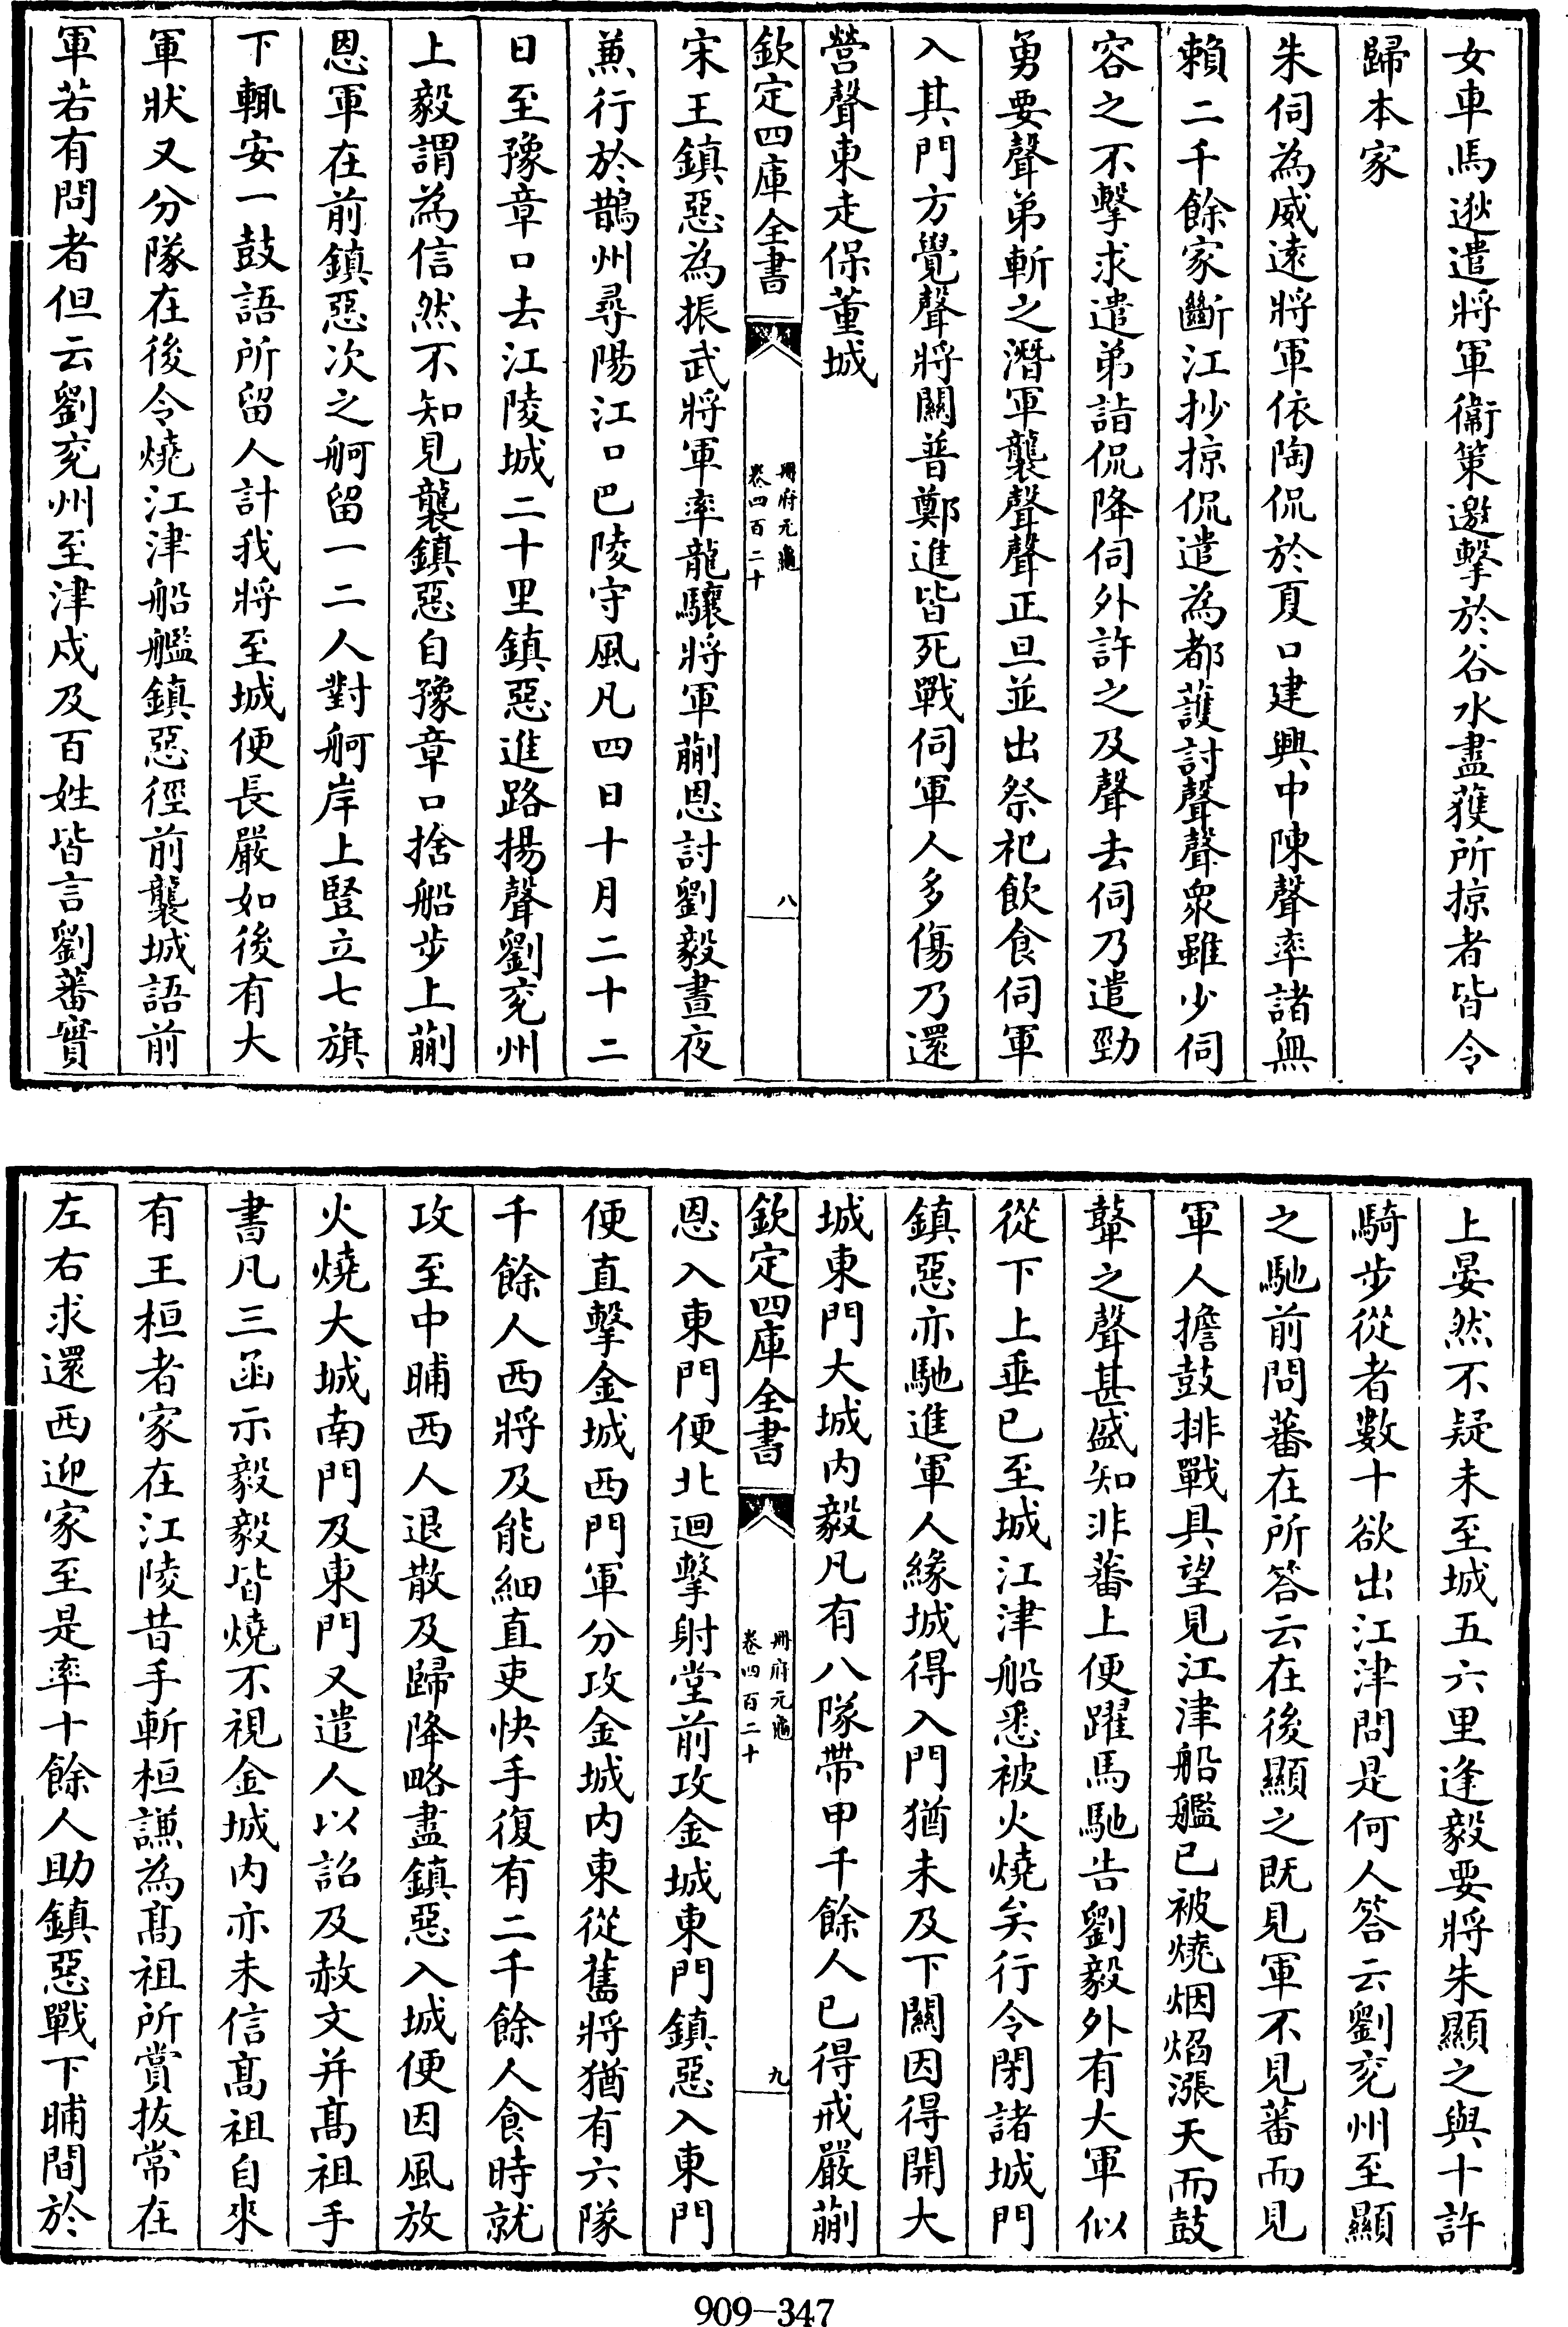 女車馬逖遣將軍衞策邀擊於谷水盡獲所掠者皆令
歸本家
朱伺為威遠將軍依陶侃於夏口建興中陳聲率諸無
賴二千餘家斷江抄掠侃遣為都護討聲聲衆雖少伺
容之不擊求遣弟詣侃降伺外許之及聲去伺乃遣勁
勇要聲弟斬之潛軍襲聲聲正旦並出祭祀飲食伺軍
入其門方覺聲將闞普鄭進皆死戰伺軍人多傷乃還
營聲東走保董城
欽定四庫全書
冊府元龜
卷四百二十
八
宋王鎮惡為振武將軍率龍驤將軍蒯恩討劉毅晝夜
兼行於鵲州尋陽江口巴陵守風凡四日十月二十二
日至豫章口去江陵城二十里鎮惡進路揚聲劉兖州
上毅謂為信然不知見襲鎮惡自豫章口捨船步上蒯
恩軍在前鎮惡次之舸留一二人對舸岸上豎立七旗
下輒安一鼓語所留人計我將至城便長嚴如後有大
軍狀又分隊在後令燒江津船艦鎮惡徑前襲城語前
軍若有問者但云劉兖州至津戍及百姓皆言劉蕃實
上晏然不疑未至城五六里逢毅要將朱顯之與十許
騎步從者數十欲出江津問是何人答云劉兖州至顯
之馳前問蕃在所答云在後顯之既見軍不見蕃而見
軍人擔鼓排戰具望見江津船艦已被燒烟焰漲天而鼓
鼙之聲甚盛知非蕃上便躍馬馳告劉毅外有大軍似
從下上垂已至城江津船悉被火燒矣行令閉諸城門
鎮惡亦馳進軍人緣城得入門猶未及下關因得開大
城東門大城内毅凡有八隊帶甲千餘人已得戒嚴蒯
欽定四庫全書
冊府元龜
卷四百二十
九
恩入東門便北迴擊射堂前攻金城東門鎮惡入東門
便直擊金城西門軍分攻金城内東從舊將猶有六隊
千餘人西將及能細直吏快手復有二千餘人食時就
攻至中晡西人退散及歸降略盡鎮惡入城便因風放
火燒大城南門及東門又遣人以詔及赦文并髙祖手
書凡三函示毅毅皆燒不視金城内亦未信髙祖自來
有王桓者家在江陵昔手斬桓謙為髙祖所賞拔常在
左右求還西迎家至是率十餘人助鎮惡戰下晡間於
909-347